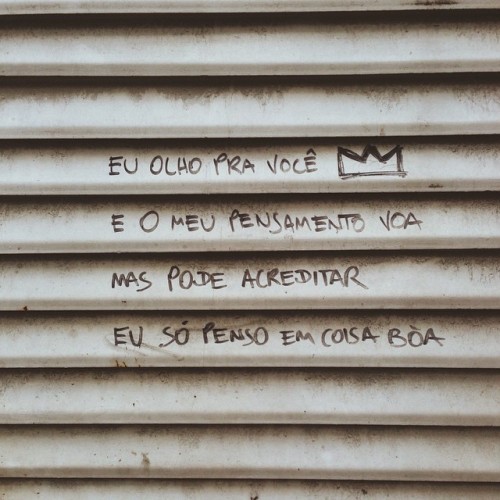 EU OLHO PRA VOCÊ
E O MEU PENSAMENTO VOA
MAS PODE ACREDITAR
EU SÓ PENSO EM COISA BÒA